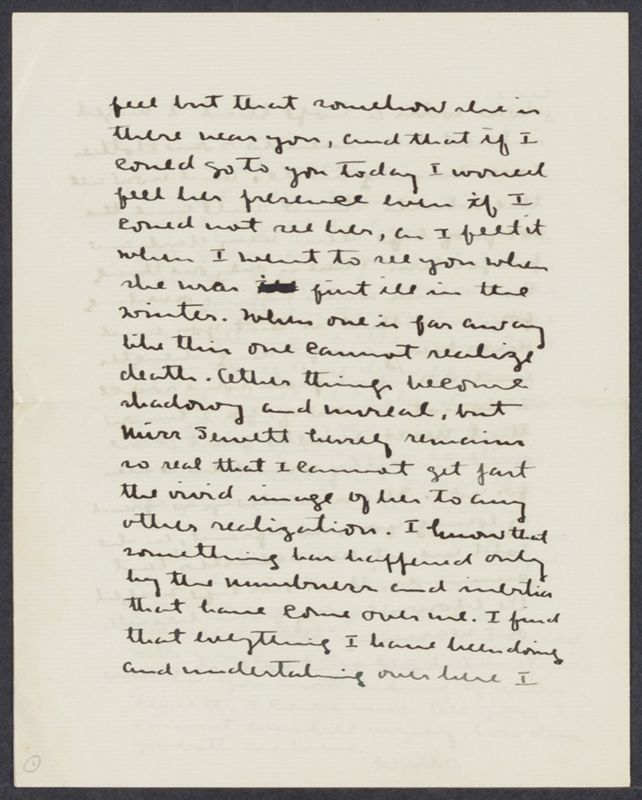 feel but that somehow she is
there near you, and that if I
could go to you today I would
feel her presence even if I
could not see her, as I felt it
when I went to see you when
she was first ill in the
winter. When one is far away
like this one cannot realize
death. Other things become
shadowy and unreal, but
Miss Jewett herself remains
so real that I cannot get past
the vivid image of her to any
other realization. I know that
something has happened only
by the numbness and inertia
that have come over me. I find
that everything I have been doing
and undertaking over here I